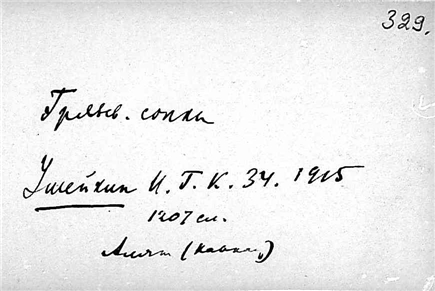 329.
Грязв. сопки
Ушейкин И. Г. К. 34. 1915
1207 сл.
Алят (Кавказ)